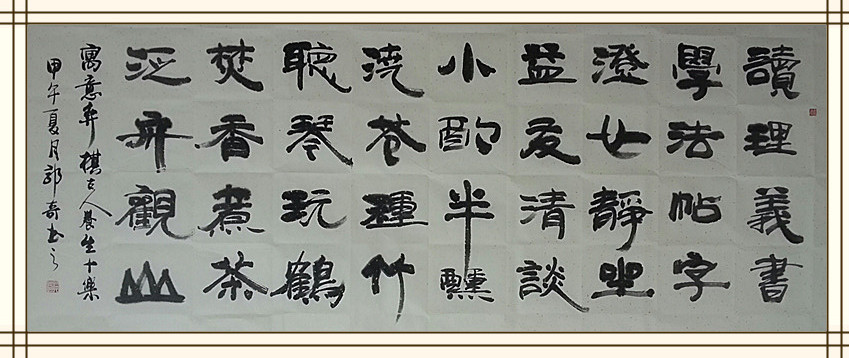 讀理義書
學法帖字
澄心靜坐
益友清談
小酌半醺
澆花種竹
聽琴玩鶴
焚香煮茶
泛舟觀山
寓意弈棋古人養生十樂
甲午夏月郭奇书之